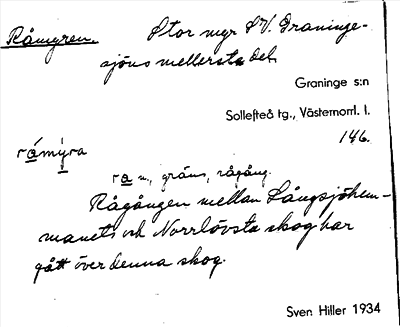 Råmyren. Stor myr SV. Graninge-
sjöns mellersta del.
Graninge s:n
Sollefteå tg., Västernorrl. l.
146.
rámy̨ra
ra m., gräns, rågång.
Rågången mellan Långsjöhem-
manets och Norrlövsta skog har
gått över denna skog.
Sven Hiller 1934